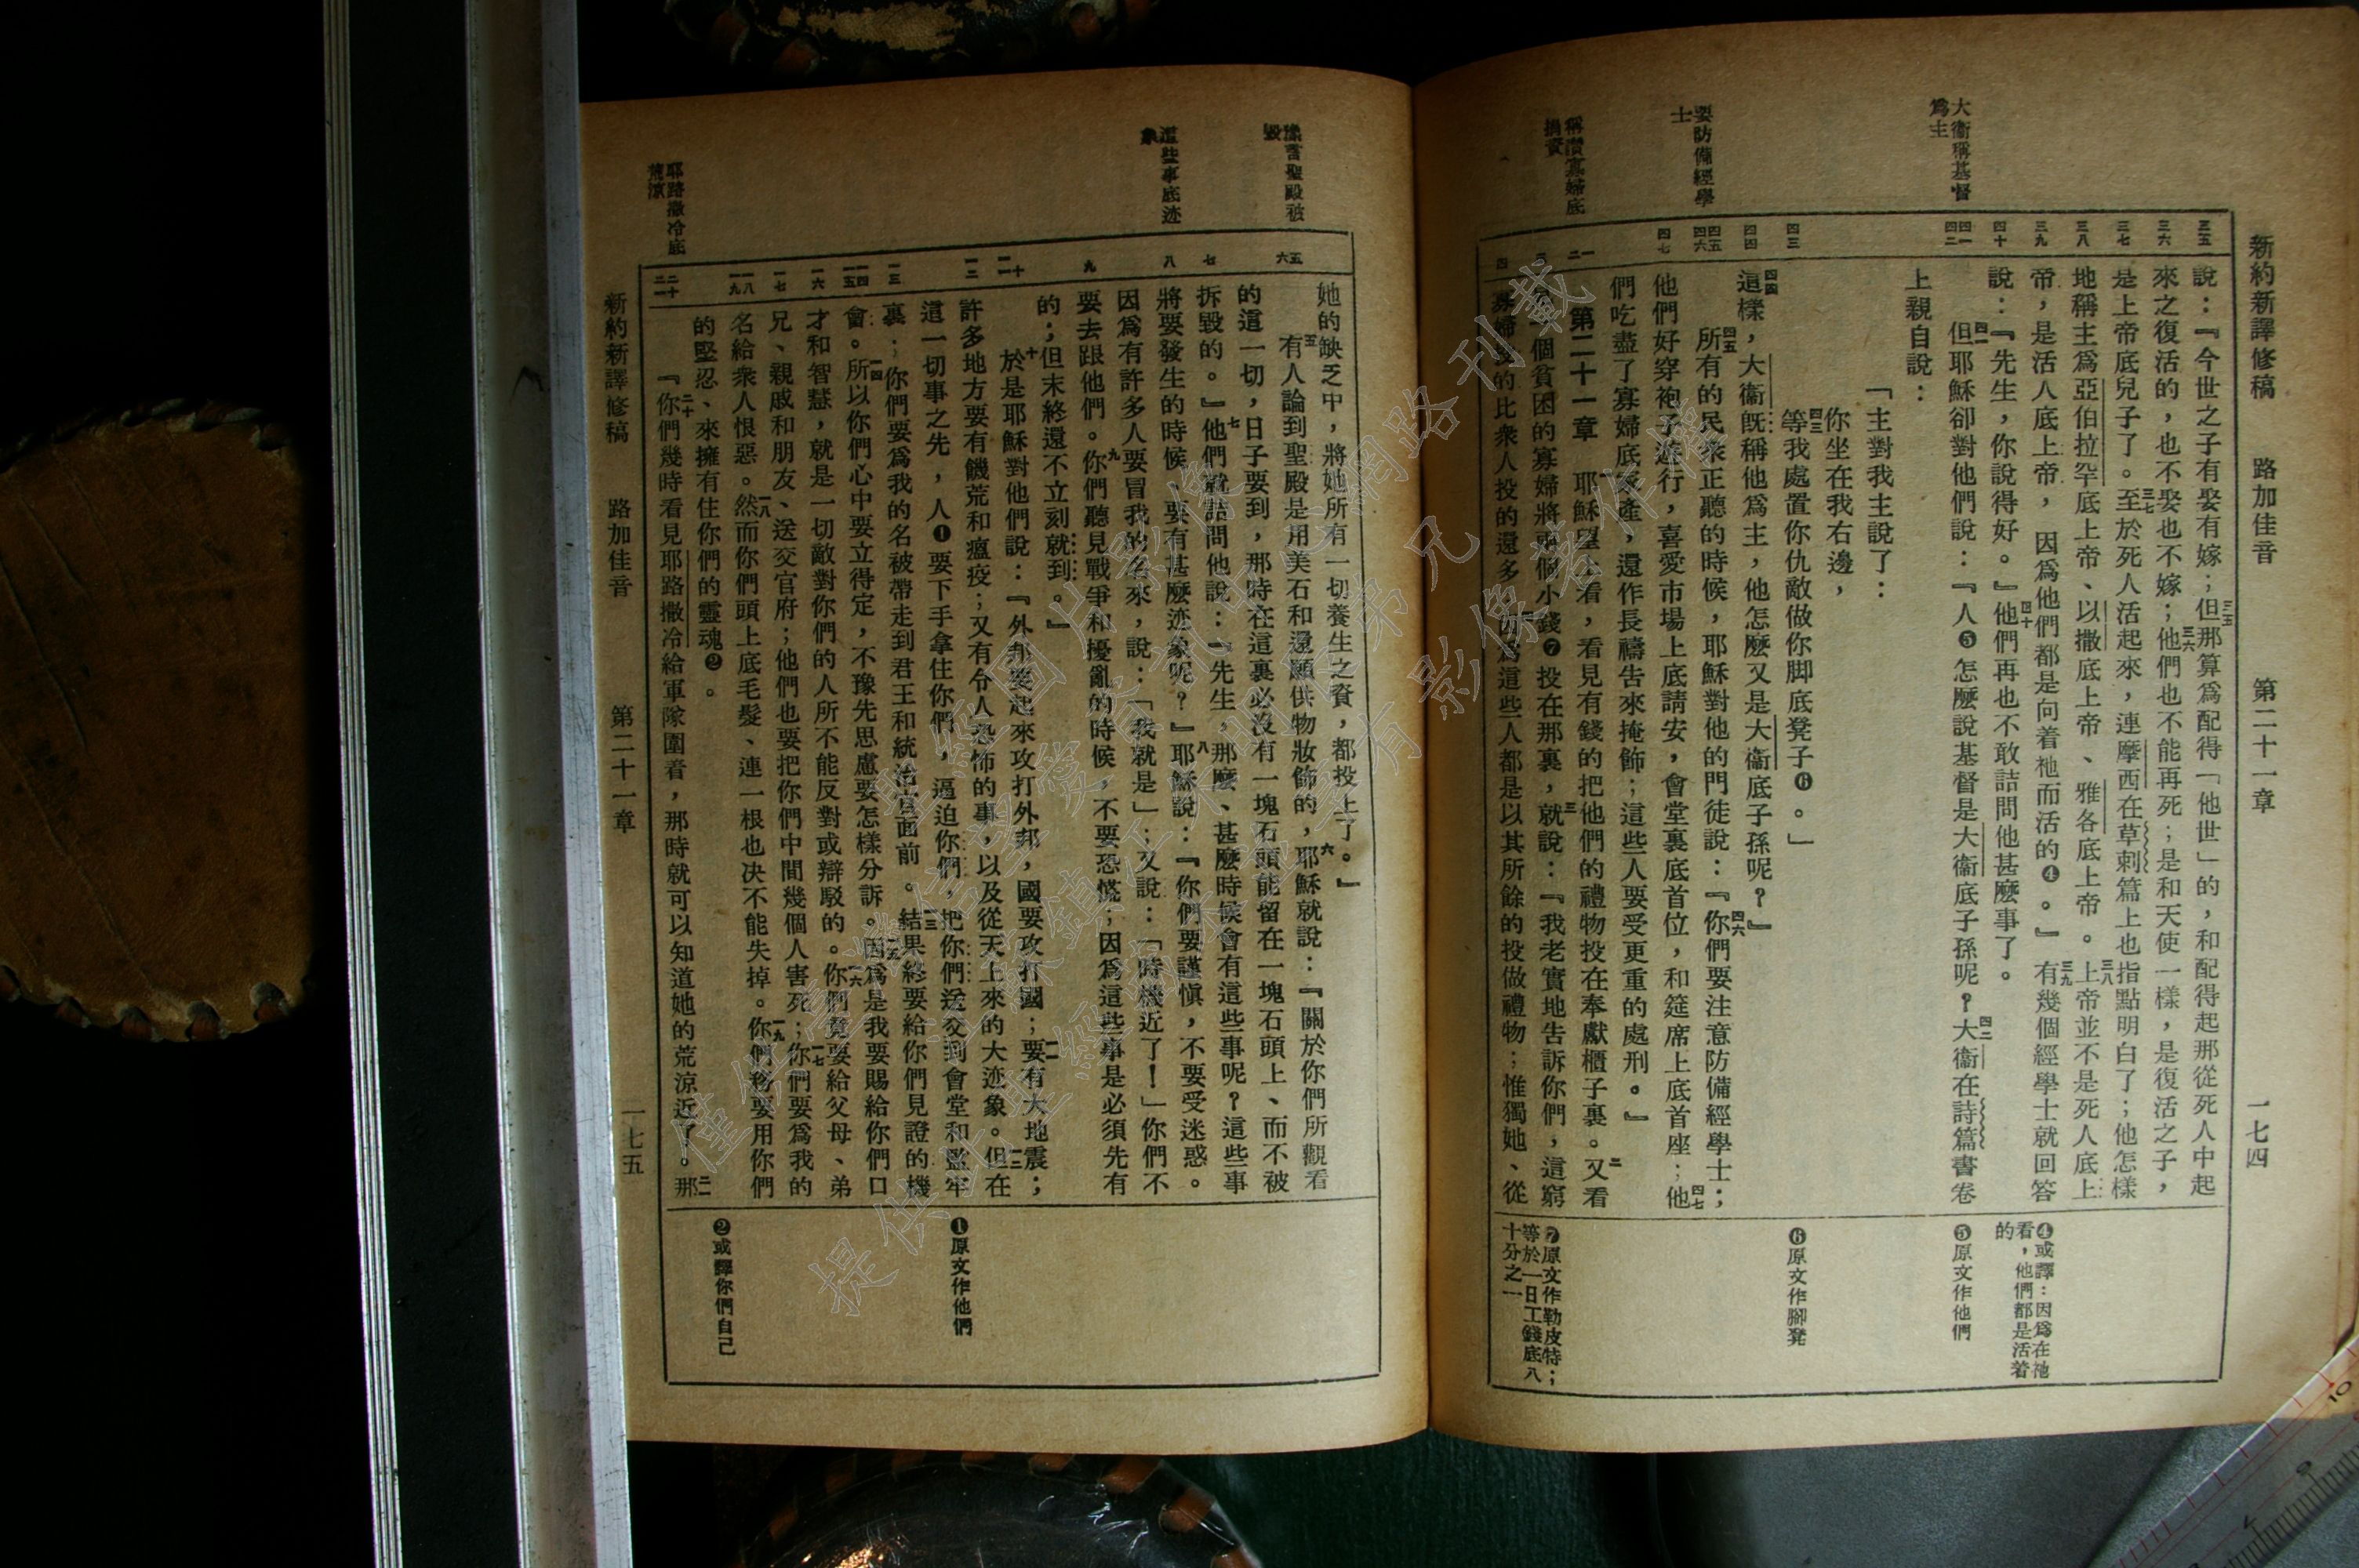 新約新譯修稿　路加佳音　第二十一章　一七四
大衞稱基督
爲主
要防備經學
士
稱讚寡婦底
捐資
三五
三六
三七
三八
三九
四十
四一
四二
四三
四四
四五
四六
四七
一
二
四
說：『今世之子有娶有嫁；三五但那算爲配得「他世」的，和配得起那從死人中起
來之復活的，也不娶也不嫁；三六他們也不能再死；是和天使一樣，是復活之子，
是上帝底兒子了。三七至於死人活起來，連摩西在草刺篇上也指點明白了；他怎樣
地稱主爲亞伯拉罕底上帝、以撒底上帝、雅各底上帝。三八上帝並不是死人底上
帝，是活人底上帝，因爲他們都是向着祂而活的❹。』三九有幾個經學士就回答
說：『先生，你說得好。』四十他們再也不敢詰問他甚麼事了。
四一但耶穌卻對他們說：『人❺怎麼說基督是大衞底子孫呢？四二大衞在詩篇書卷
上親自說：
「主對我主說了：
你坐在我右邊，
四三等我處置你仇敵做你脚底凳子❻。」
四四這樣，大衞旣稱他爲主，他怎麼又是大衞底子孫呢？』
四五所有的民衆正聽的時候，耶穌對他的門徒說：『四六你們要注意防備經學士；
他們好穿袍子遊行，喜愛市場上底請安，會堂裏底首位，和筵席上底首座；四七他
們吃盡了寡婦底家產，還作長禱告來掩飾；這些人要受更重的處刑。』
第二十一章　耶穌望上看，看見有錢的把他們的禮物投在奉獻櫃子裏。二又看
個貧困的寡婦將兩個小錢❼投在那裏，三就說：『我老實地告訴你們，這窮
寡婦投的比衆人投的還多。四因爲這些人都是以其所餘的投做禮物；惟獨她、從
❹或譯：因爲在祂
看，他們都是活着
的
❺原文作他們
❻原文作腳凳
❼原文作勒皮特；
等於一日工錢底八
十分之一
豫言聖殿被
毀
這些事底迹
象
耶路撒冷底
荒涼
五
六
七
八
九
十
一一
一二
一三
一四
一五
一六
一七
一八
一九
二十
二一
她的缺乏中，將她所有一切養生之資，都投上了。』
五有人論到聖殿是用美石和還願供物妝飾的，六耶穌就說：『關於你們所觀看
的這一切，日子要到，那時在這裏必沒有一塊石頭能留在一塊石頭上、而不被
拆毀的。』七他們就詰問他說：『先生，那麼、甚麼時候會有這些事呢？這些事
將要發生的時候、要有甚麼迹象呢？』八耶穌說：『你們要謹愼，不要受迷惑。
因爲有許多人要冒我的名來，說：「我就是」；又說：「時機近了！」你們不
要去跟他們。九你們聽見戰爭和擾亂的時候，不要恐慌；因爲這些事是必須先有
的；但末終還不立刻就到。』
十於是耶穌對他們說：『外邦要起來攻打外邦，國要攻打國；一一要有大地震；
許多地方要有饑荒和瘟疫；又有令人恐怖的事，以及從天上來的大迹象。一二但在
這一切事之先，人❶要下手拿住你們，逼迫你們，把你們送交到會堂和監牢
裏；你們要爲我的名被帶走到君王和統治者面前。一三結果終要給你們見證的機
會。一四所以你們心中要立得定，不豫先思慮要怎樣分訴。一五因爲是我要賜給你們口
才和智慧，就是一切敵對你們的人所不能反對或辯駁的。一六你們竟要給父母、弟
兄、親戚和朋友、送交官府；他們也要把你們中間幾個人害死；一七你們要爲我的
名給衆人恨惡。一八然而你們頭上底毛髮、連一根也决不能失掉。一九你們務要用你們
的堅忍、來擁有住你們的靈魂❷。
『二十你們幾時看見耶路撒冷給軍隊圍着，那時就可以知道她的荒涼近了。二一那
❶原文作他們
❷或譯你們自己
新約新譯修稿　路加佳音　第二十一章　一七五
10
9